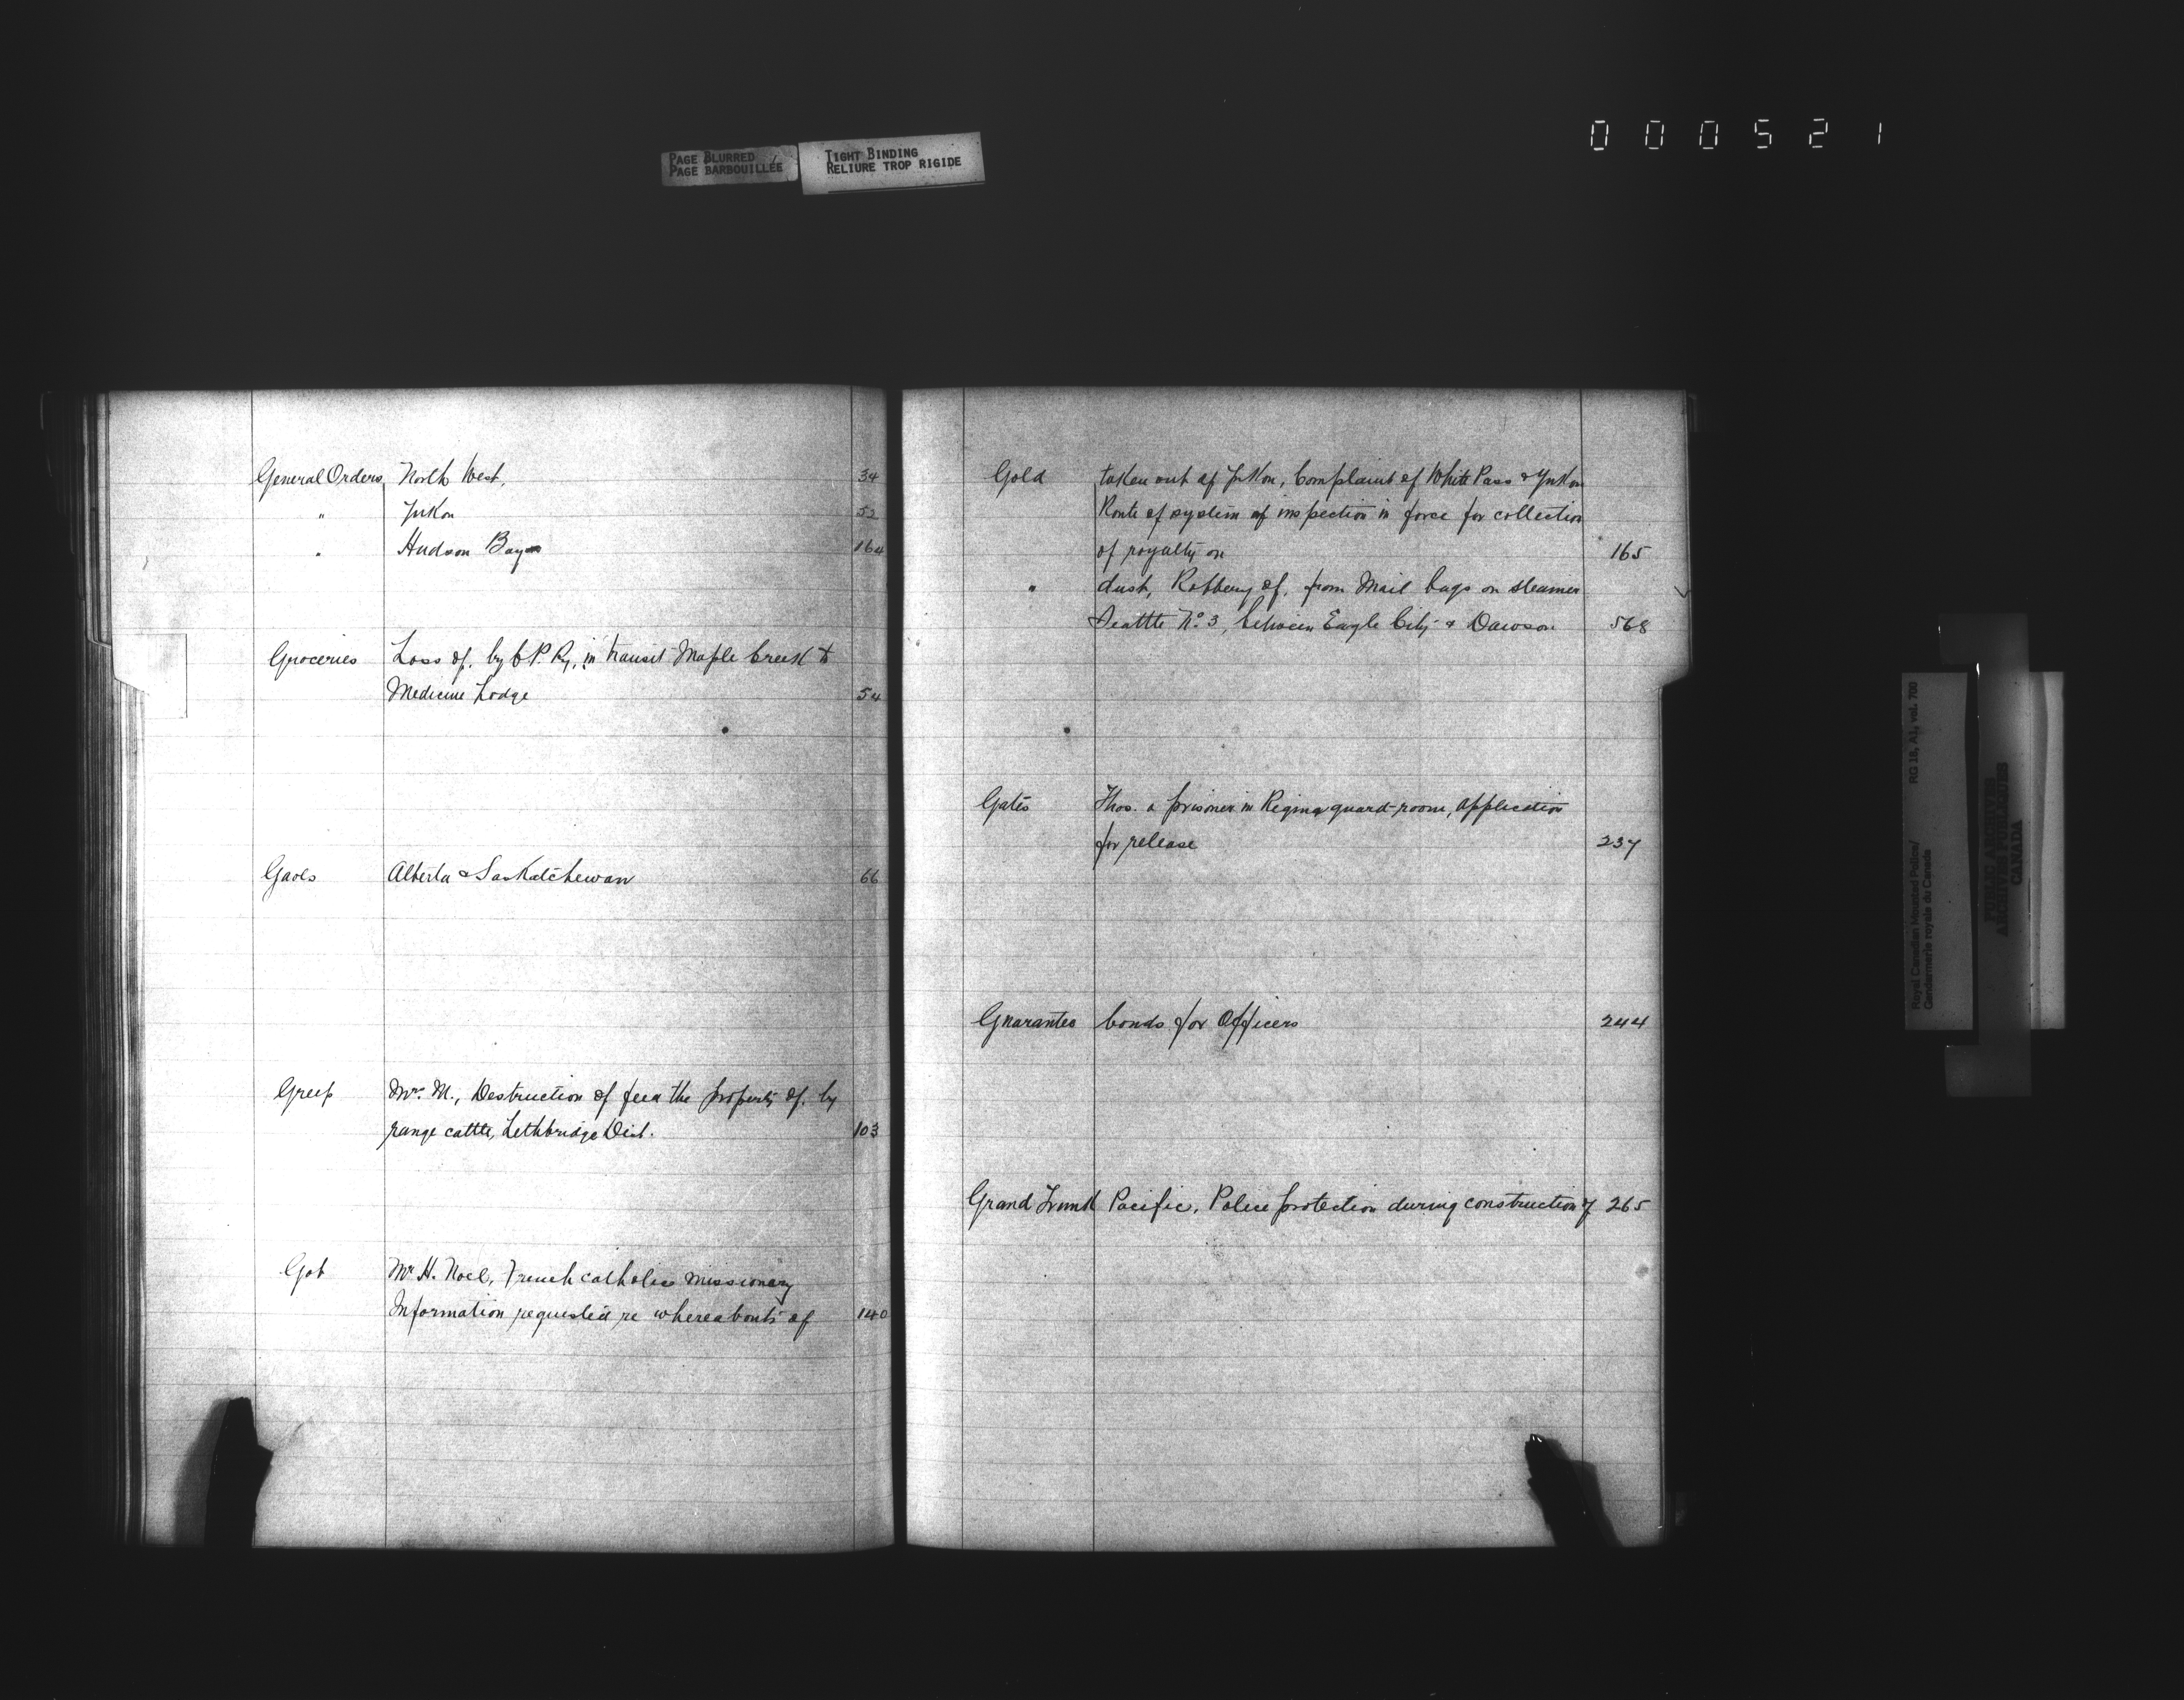 0 0 0 5 2 1
PAGE BLURRED
PAGE BARBOUILLÉE
TIGHT BINDING
RELIURE TROP RIGIDE
General Orders North West, 34
" Yukon 52
" Hudson Bay 164
Groceries Loss of, by C.P. Ry, in transit Maple Creek to
Medicine Lodge 54
Gaols Alberta & Saskatchewan 66
Greep Mr. M., Destruction of feed the property of, by
range cattle, Lethbridge Dist. 103
Got Mr. H. Noel, French catholic missionary
Information requested re whereabouts of 140
Gold taken out of Yukon, Complaint of White Pass & Yukon
Route of system of inspection in force for collection
of royalty on 165
" dust, Robbery of, from Mail bags on steamer
Seattle No. 3, between Eagle City & Dawson 568
Gates Thos. a prisoner in Regina guard-room, application
for release 237
Guarantee bonds for Officers 244
Grand Trunk Pacific, Police protection during construction of 265
Royal Canadian Mounted Police/
Gendarmerie royale du Canada
RG 18, A1, vol. 700
PUBLIC ARCHIVES
ARCHIVES PUBLIQUES
CANADA